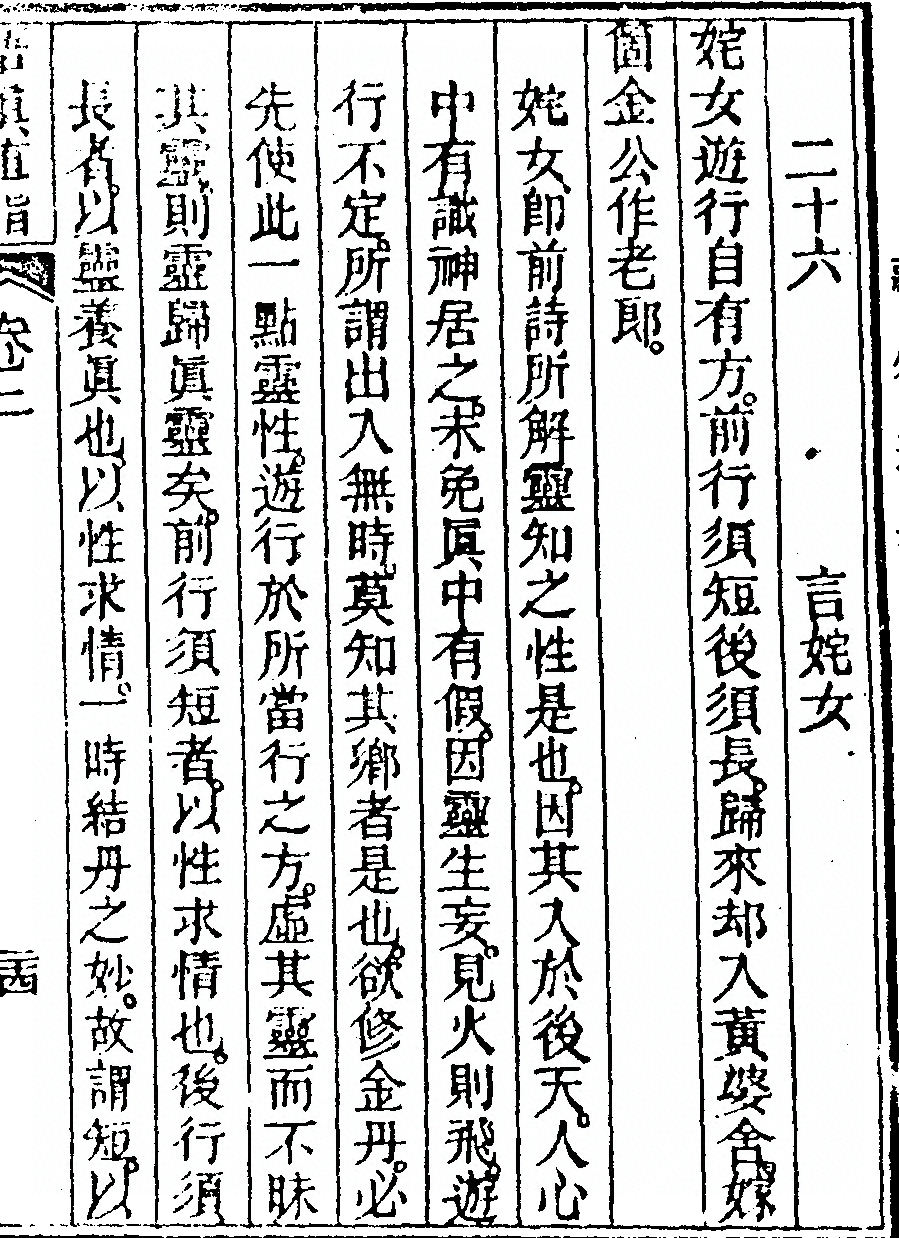 二十六 言姹女
姹女遊行自有方。前行須短後須長。歸來却入黃婆舍。嫁
箇金公作老郎。
姹女、卽前詩所解靈知之性是也。因其入於後天。人心
中有識神居之。未免眞中有假。因靈生妄。見火則飛。遊
行不定。所謂出入無時、莫知其鄉者是也。欲修金丹。必
先使此一點靈性。遊行於所當行之方。虛其靈而不昧
其靈、則靈歸眞靈矣。前行須短者。以性求情也。後行須
長者。以靈養眞也。以性求情。一時結丹之妙。故謂短。以
悟眞直指 卷二 十四